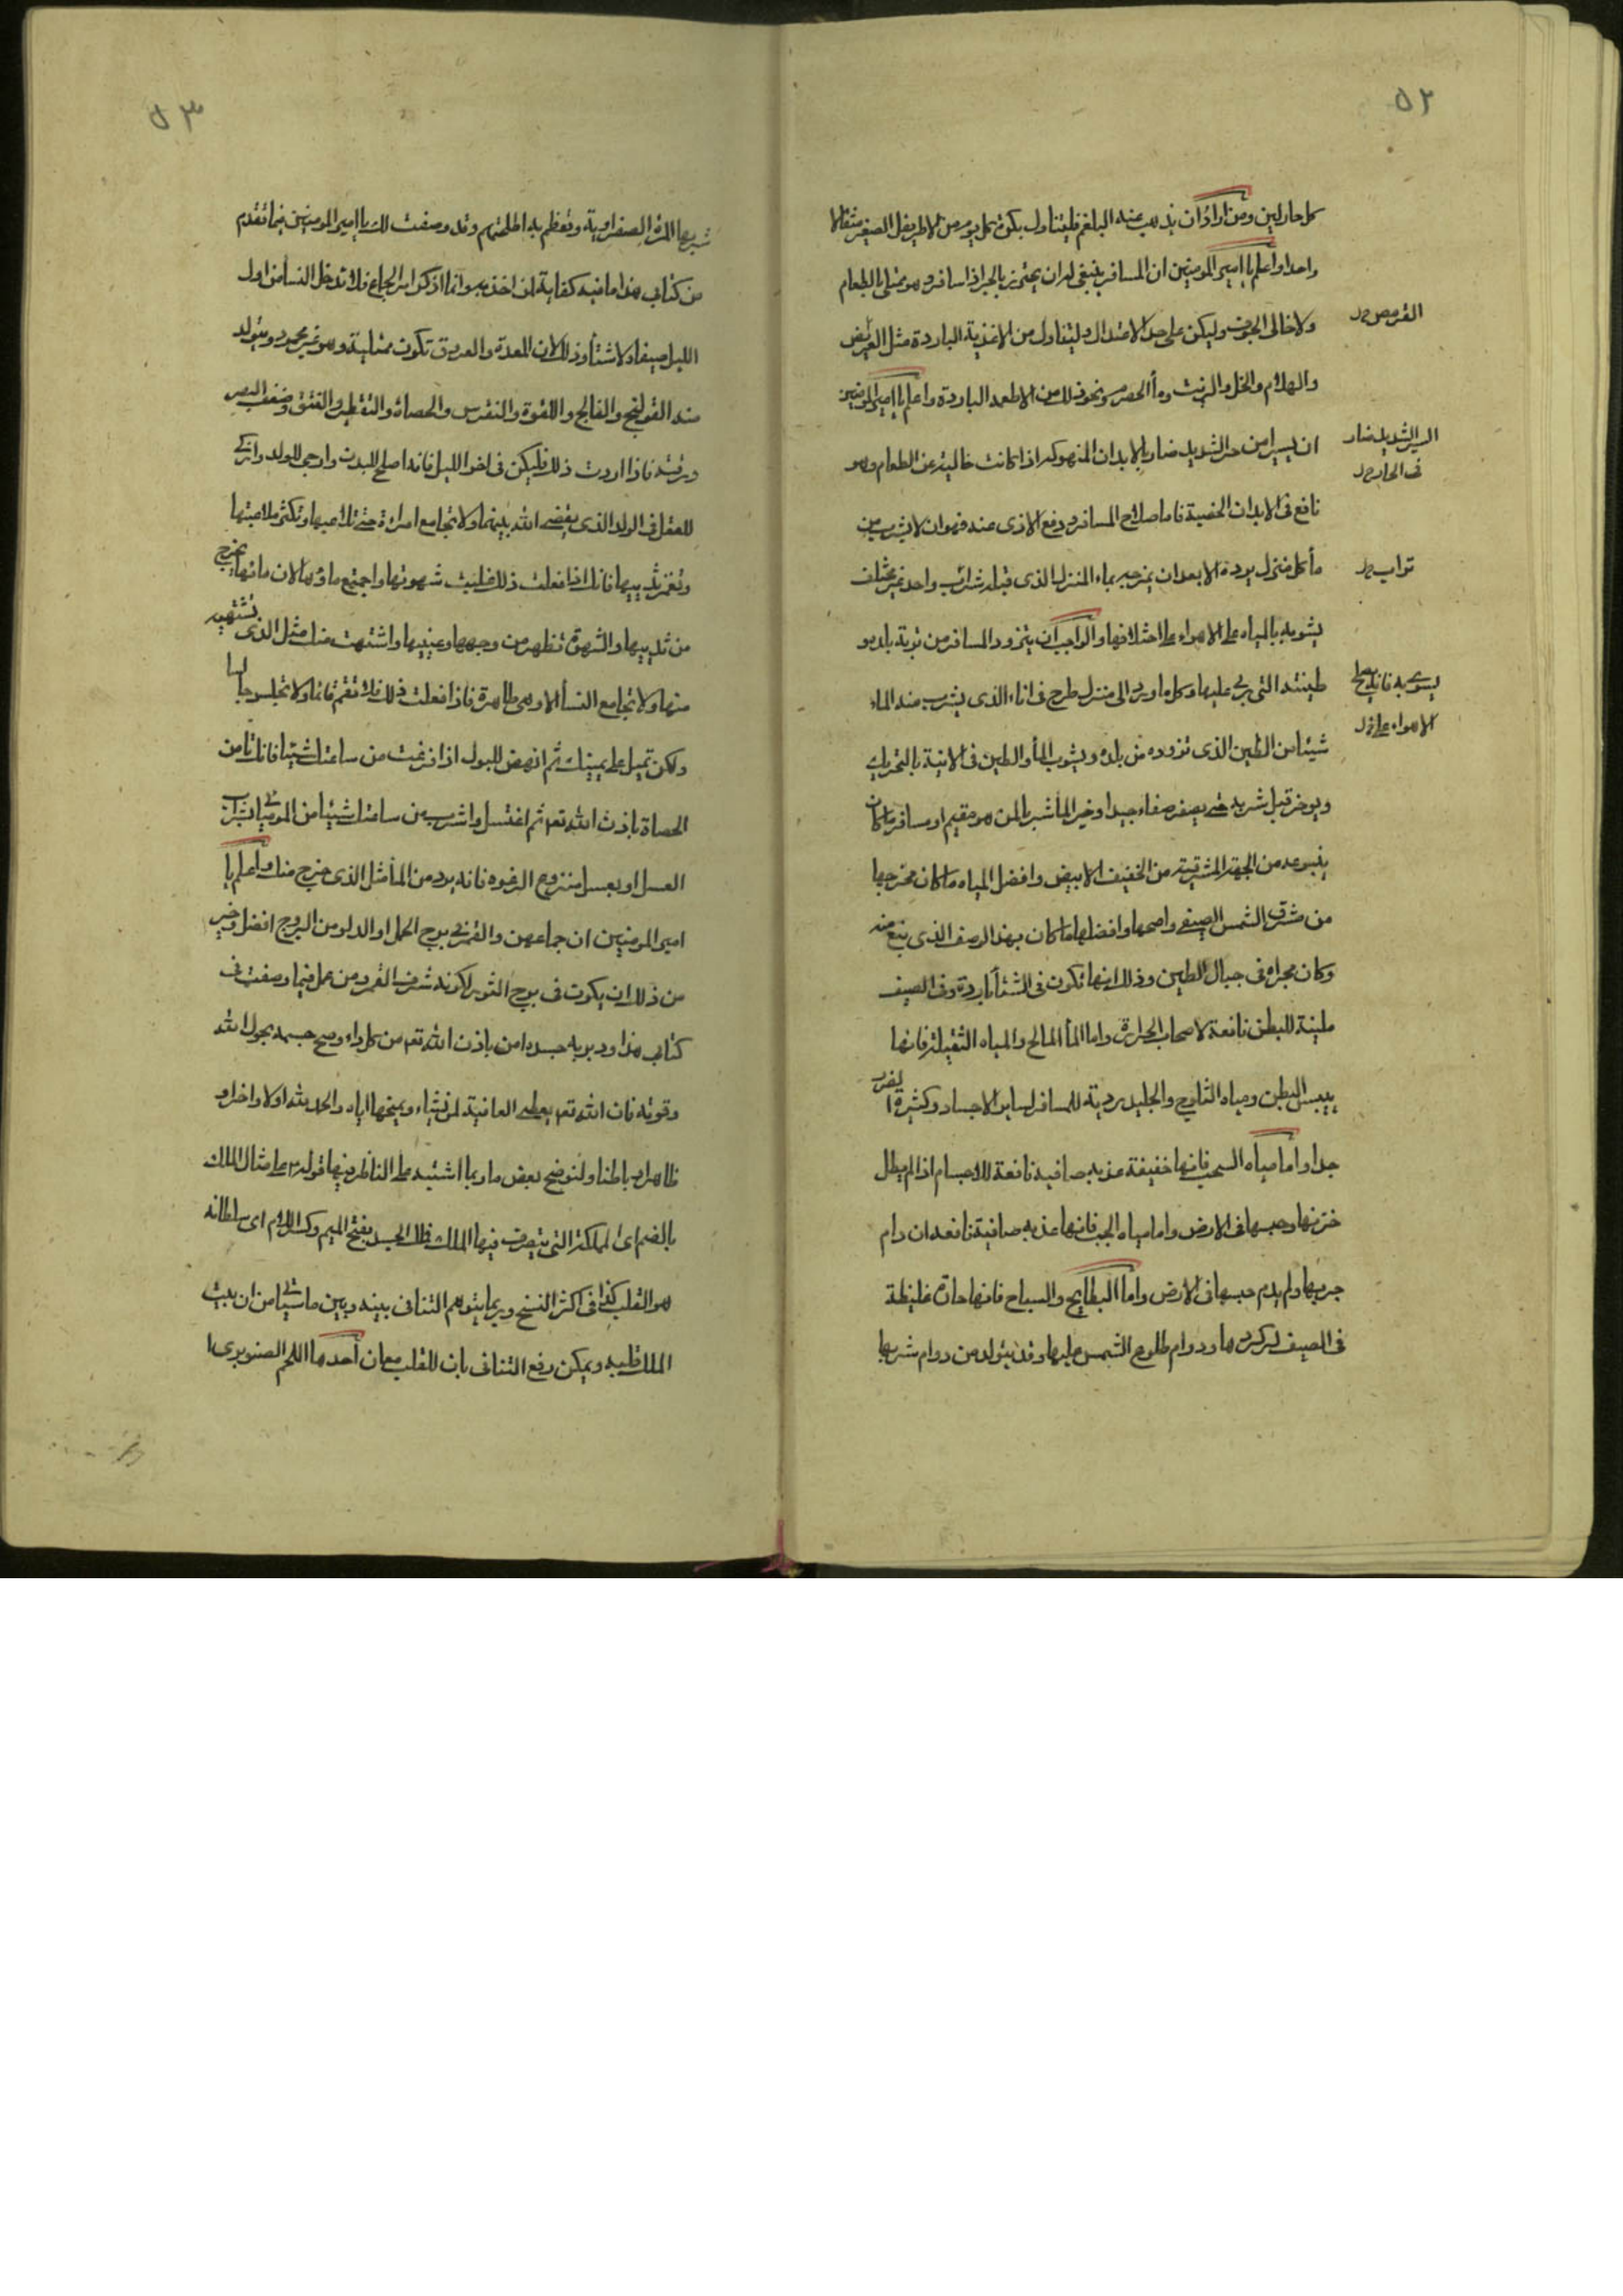 ٥٢
كل حار لين ومن اراد ان يذهب عنه البلغم فليتناول بكرة كل يوم من الاطريفل الصغير مثقالا
واحدا واعلم يا امير المومنين ان المسافر ينبغي له ان يحترز بالحر اذا سافر وهو ممتلى بالطعام
ولا خالى الجوف وليكن على حد الاعتدال وليتناول من الاغذية الباردة مثل القريض
والهلام والخل والزيت وماء الحصرم ونحو ذلك من الاطعمه الباردة واعلم يا امير المومنين
ان السير فى حر الشديد ضار بالابدان المنهوكه اذا كانت خالية عن الطعام وهو
نافع فى الابدان الخصبة فاما صلاح المسافر ودفع الاذى عنه فهو ان لا يشرب من
ماء كل منزل يرده الا بعد ان يمزجه بماء المنزل الذى قبله شراب واحد غير مختلف
يشوبه بالمياه على الاهواء على اختلافها والواجب ان يتزود المسافر من تربة بلده و
طينته التى ربى عليها وكلما ورد الى منزل طرح فى اناءه الذى يشرب منه الماء
شيئا من الطين الذى تزوده من بلده ويشوب الماء والطين فى الانية بالتحريك
ويوخر قبل شربه حتى يصفو صفاء جيدا وخير الماء شربا لمن هو مقيم او مسافر ما كان
ينبوعه من الجهة المشرقية من الخفيف الابيض وافضل المياه ما كان مخرجها
من مشرق الشمس الصيفى واصحها وافضلها ما كان بهذا الوصف الذى ينبع منه
وكان مجراه فى جبال الطين وذلك انها تكون فى الشتاء باردة وفى الصيف
ملينة للبطن نافعة لاصحاب الحرارة واما الماء المالح والمياه الثقيلة فانها
ييبس البطن ومياه الثلوج والجليد ردية للمسافر لساير الاجساد وكثيرة الضرر
جدا واما مياه السحب فانها خفيفة عذبه صافيه نافعة للاجسام اذا لم يطل
خزنها وحبسها فى الارض واما مياه الجب فانها عذبه صافية نافعه ان دام
جريها ولم يدم حبسها فى الارض واما البطايح والسباخ فانها حارة غليظة
فى الصيف لركودها ودوام طلوع الشمس عليها وقد يتولد من دوام شربها
القريص
السير الشديد ضار
فى الحار
تراب
يشوبه فانه يصلح
الاهواء على
٥٣
شربها المرة الصفراوية وتعظم به اطحلتهم وقد وصفت لك يا امير المومنين فيما تقدم
من كتابى هذا ما فيه كفاية لمن اخذ به وانا اذكر امر الجماع فلا تدخل النساء من اول
الليل صيفا ولا شتاء وذلك لان المعدة والعروق تكون ممتلية وهو غير محمود ويتولد
منه القولنج والفالج واللقوة والنقرس والحصاة والتقطير والفتق وضعف البصر
ورقته فاذا اردت ذلك فليكن فى اخر الليل فانه اصلح للبدن وارجى للولد وازكى
للعقل فى الولد الذى يقضى الله بينهما ولا تجامع امراة حتى تلاعبها وتكثر ملاعبتها
وتغمز ثدييها فانك اذا فعلت ذلك غلبت شهوتها واجتمع ماؤها لان ماءها يخرج
من ثدييها والشهوة تظهر من وجهها وعينيها واشتهت منك مثل الذى تشتهيه
منها ولا تجامع النساء الا وهى طاهرة فاذا فعلت ذلك فلا تقم قائما ولا تجلس جالسا
ولكن تميل على يمينك ثم انهض للبول اذا فرغت من ساعتك شيئا فانك تامن
الحصاة باذن الله تع ثم اغتسل واشرب من ساعتك شيئا من الموميائى بشراب
العسل او بعسل منزوع الرغوه فانه يرد من الماء مثل الذى خرج منك واعلم يا
امير المومنين ان جماعهن والقمر فى برج الحمل او الدلو من البروج افضل وخير
من ذلك ان يكون فى برج الثور لكونه شرف القمر ومن عمل فيما وصفت فى
كتابى هذا ودبر به جسده امن باذن الله تع من كل داء وصح جسمه بحول الله
وقوته فان الله تع يعطى العافية لمن يشاء ويمنحها اياه والحمد لله اولا واخرا و
ظاهرا وباطنا ولنوضح بعض ما ربما اشتبه على الناظر فيها قوله ع على مثال الملك
بالضم اى المملكة التى يتصرف فيها الملك فملك الجسد بفتح الميم وكسر اللام اى سلطانه
هو القلب كذا فى اكثر النسخ وربما يتوهم التنافى بينه وبين ما سيأتى من ان بيت
الملك قلبه ويمكن رفع التنافى بان للقلب معان احدها اللحم الصنوبرى